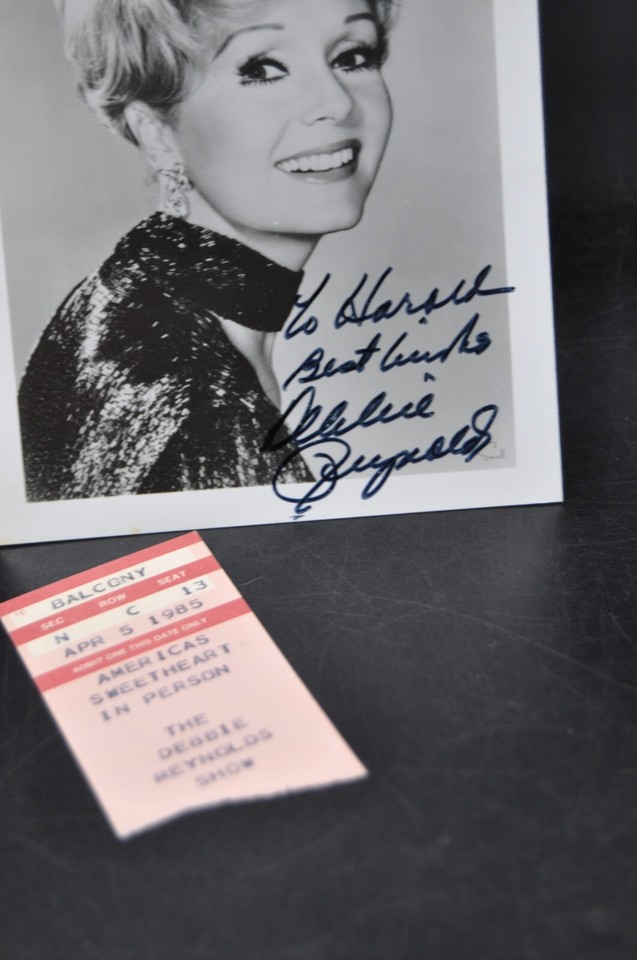 To Harold
Best Wishes
Debbie
Reynolds
BALCONY
SEC ROW SEAT
N C 13
APR 5 1985
ADMIT ONE THIS DATE ONLY
AMERICAS
SWEETHEART
IN PERSON
THE
DEBBIE
REYNOLDS
SHOW